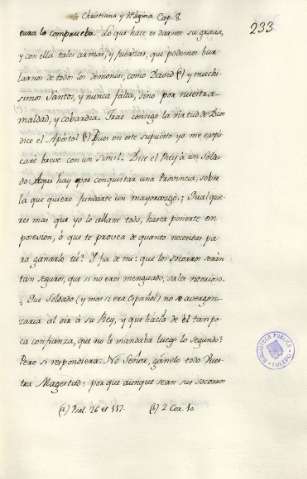 Christiana y Magina Cap. 8.
233
tura lo comprueba. Lo que hace es darnos su gracia,
y con ella tales armas, y fuerzas, que podemos bur-
larnos de todos los demonios, como David (a) y muchi-
simos Santos, y nunca falta, sino por nuestra
maldad, y cobardia. Trae consigo la virtud de Dios
dice el Apostol (b) Pues en este supuesto yo me expli-
caré breve con un simil. Dice el Rey à un Sol-
do: Aqui hay que conquistar una Provincia, sobre
la que quiero fundarte un mayorazgo; ¿Qual que-
res mas que yo lo allane todo, hasta ponerte en
posesion, ó que te provea de quanto necesitas pa-
ra ganarla tú? Y fia de mi: que los socorros serán
tan seguros, que si no eres menguado, saldrás victorioso.
¿Qué Soldado (y mas si era Español) no se avergon-
zaria al oir à su Rey, y que hacia de él tan po-
ca confianza, que no le mandaba luego lo segundo?
Pero si respondiera: No Señor, ganelo todo Vues-
tra Magestad: porque aunque sean sus socorros
(a) Psal. 26 et 117. (b) 2 Cor. 10.
BIBLIOTECA PUBLICA